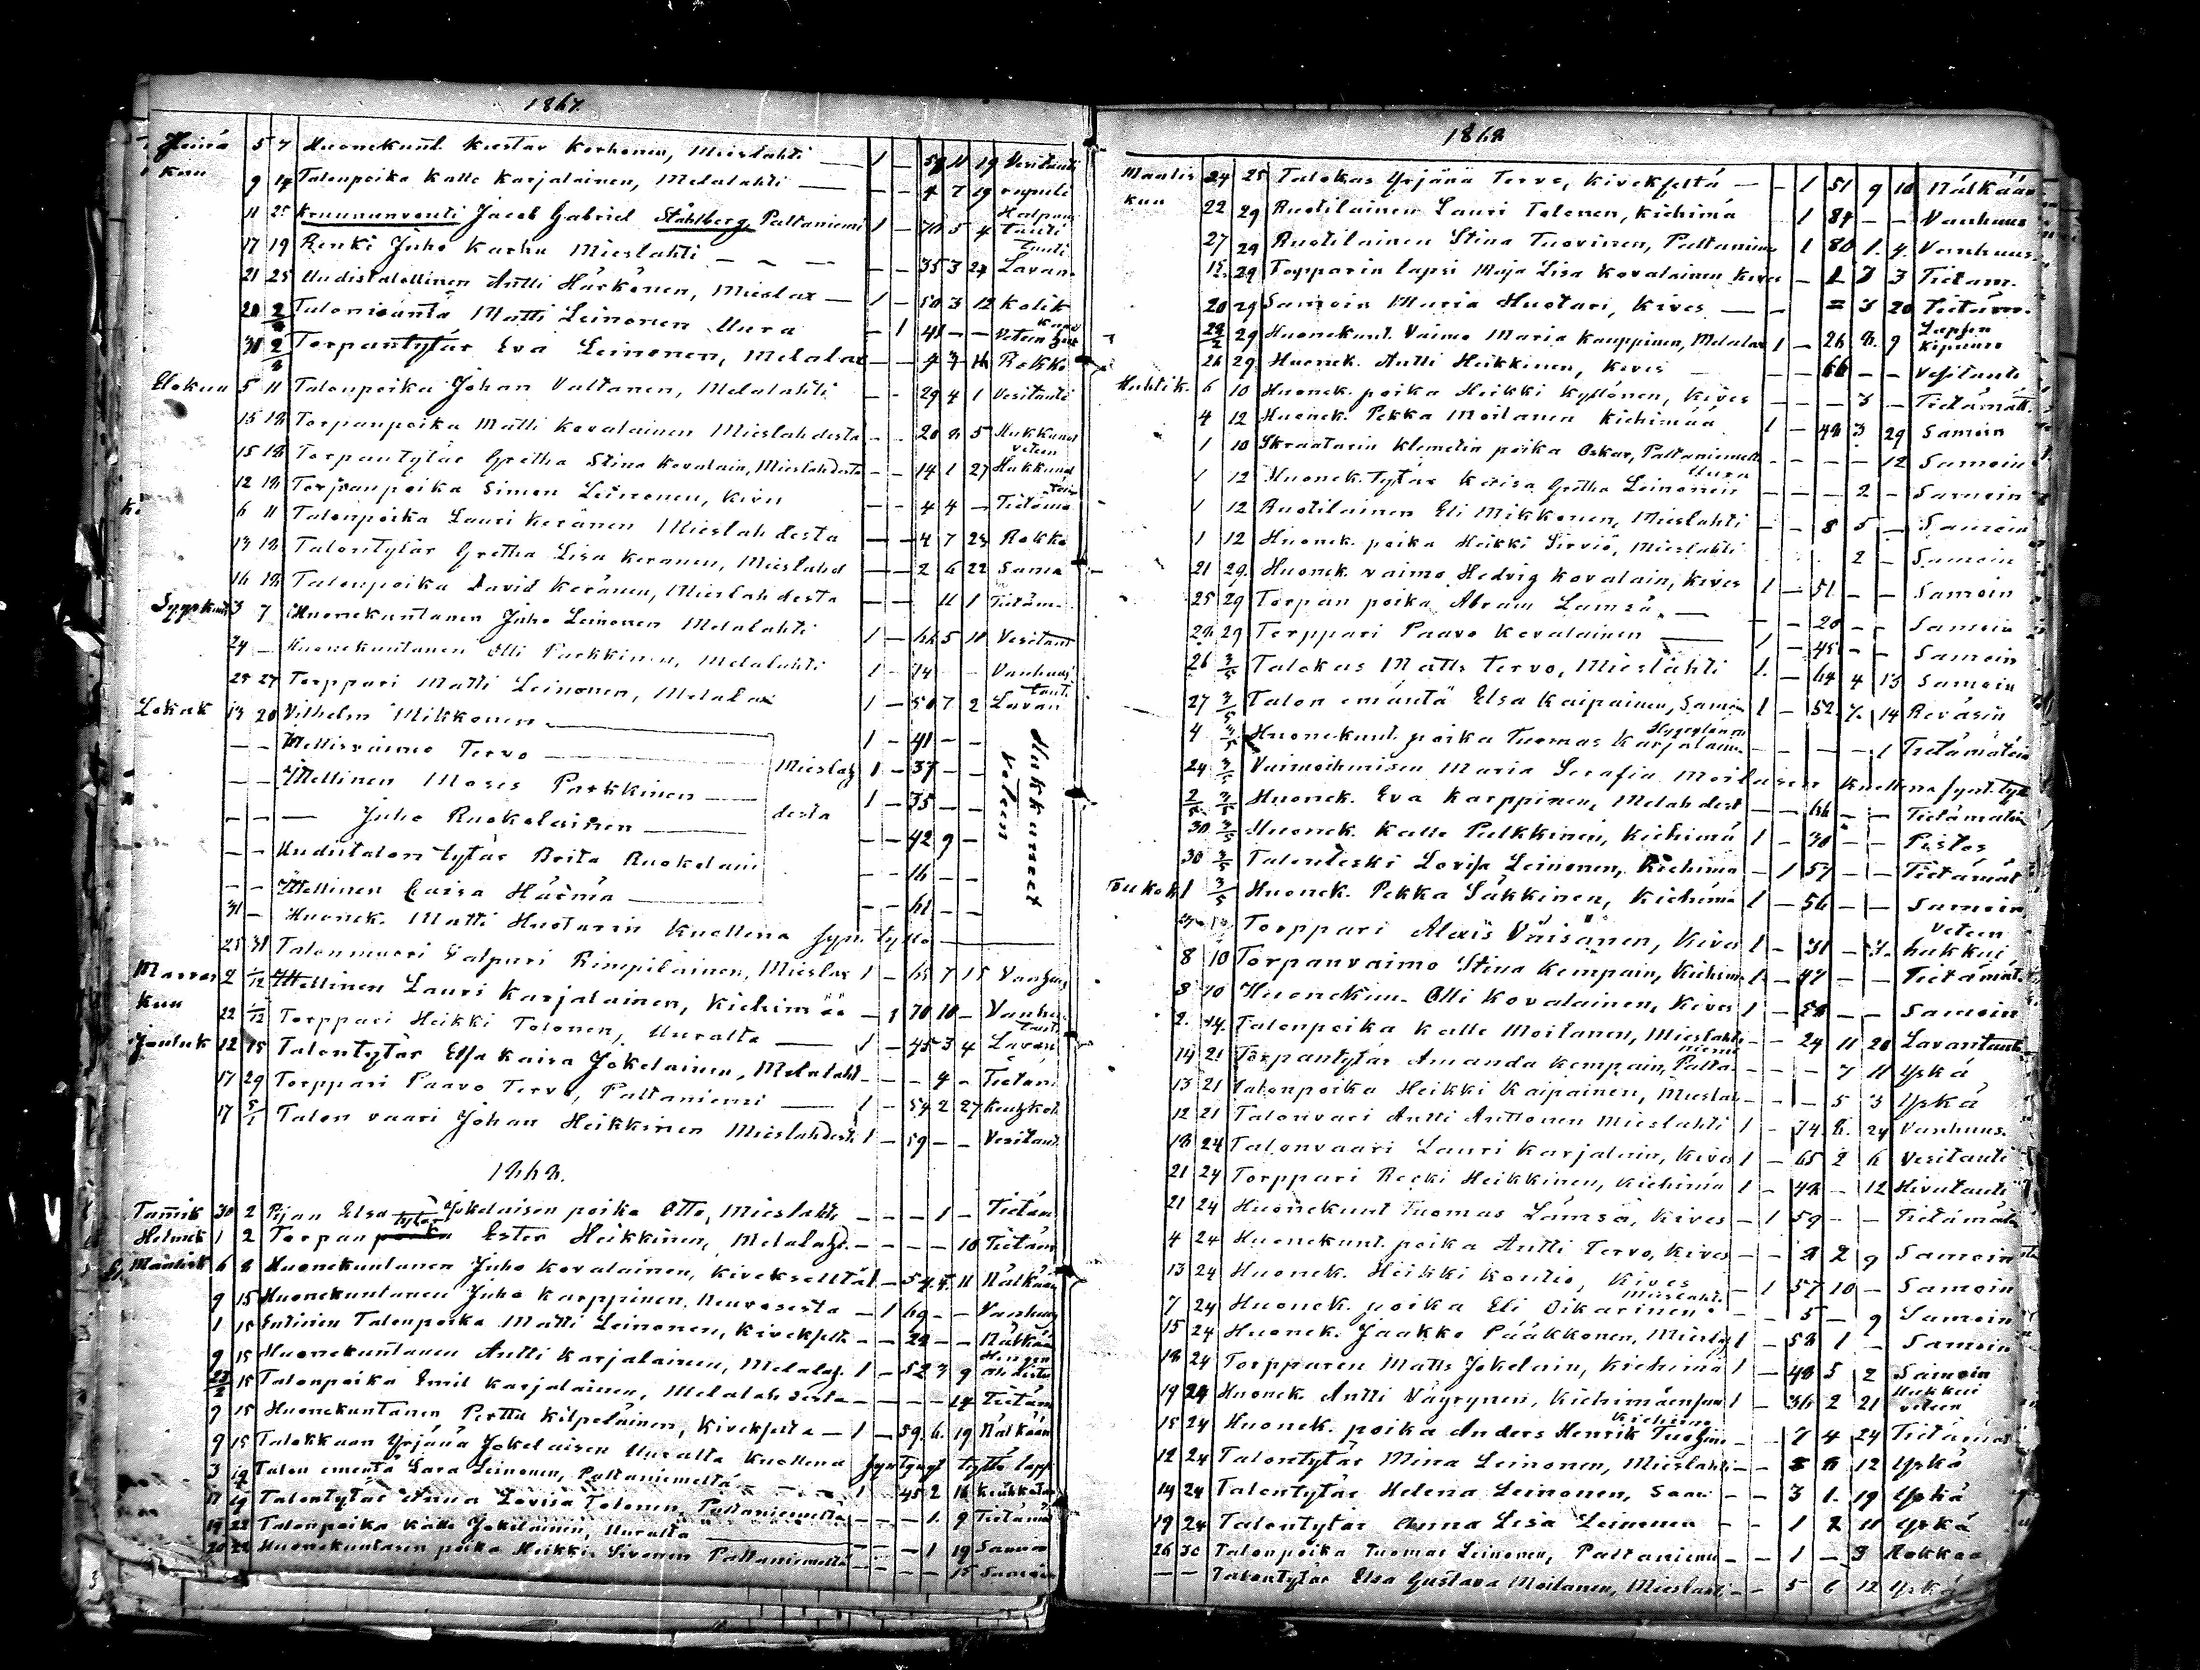 1867.
Heinä 5 7 Huonekunt. Kustav Korhonen, Mieslahti — 1 — 58 11 19 Vesitauti
kuu 9 14 Talonpoika Kalle Karjalainen, Melalahti — — — 4 7 19 rupuli
11 25 Kruununvouti Jacob Gabriel Ståhlberg, Paltaniemi 1 — 70 5 4 Halpaus tauti
17 19 Renki Juho Karhu Mieslahti — — — — 35 3 24 Lavan tauti
21 25 Uudistalollinen Antti Härkönen, Mieslax — 1 — 50 3 12 Kolik
28 2/8 Talonisäntä Matti Leinonen Uura — 1 41 — —
31 2/8 Torpantytär Eva Leinonen, Melalax — — 4 3 16 Rokko
Elokuu 5 11 Talonpoika Johan Valtanen, Melalahti — — 29 4 1 Vesitauti
15 18 Torpanpoika Matti Kovalainen Mieslahdesta — — 20 8 5 Hukkunut veteen
15 18 Torpantytär Gretha Stina Kovalain, Mieslahdesta — — 14 1 27 Hukkunut
12 18 Torpanpoika Simon Leinonen, Kive — — 4 4 — Tietäma
6 11 Talonpoika Lauri Keränen Mieslahdesta — — 4 7 23 Rokko
13 18 Talontytär Gretha Lisa Keränen, Mieslahd — — 2 6 22 Sama
16 18 Talonpoika David Keränen, Mieslahdesta — — 11 1 Tietäm.
Syyskuu 3 7 Huonekuntanen Juho Leinonen Melalahti 1 — 66 5 10 Vesitaut
24 — Huonekuntanen Olli Parkkinen, Melalahti 1 — 74 Vanhuus
25 27 Torppari Matti Leinonen, Melalax 1 — 50 7 2 Lavan taut.
Lokak 13 20 Vilhelm Mikkonen — 1 — 41 — —
— — Ittellisvaimo Tervo — Mieslah 1 — 37 — —
— — Ittellinen Moses Parkkinen — 1 — 35 — —
— — — Juho Ruokolainen — desta — — 42 9 —
— — Uudistalon tytär Brita Ruokolain — — 16 — —
— — Ittellinen Caisa Härmä — — — 61 — —
Hukkuneet veteen
31 — Huonek. Matti Huotarin Kuollena synt. tyttö —
25 31 Talonmuori Valpuri Rimpiläinen, Mieslax 1 — 65 7 15 Vanhuus
Marras 2 1/12 Ittellinen Lauri Karjalainen, Kiehimää — 1 70 10 — Vanhu.
kuu 22 1/12 Torppari Heikki Tolonen, Uuralta — 1 — 45 3 4 Lavan taut.
Jouluk 12 15 Talontytär Elsa Kaisa Jokelainen, Melalaht — — — 4 — Tietäm
17 29 Torppari Paavo Tervo, Paltaniemi — 1 — 54 2 27 Keuhkot.
17 5/1 Talon vaari Johan Heikkinen Mieslahdest. 1 — 59 — — Vesitaut
1868.
Tamik 30 2 Pijan Elsa Jokelaisen poika Otto, Mieslahti — — — 1 — Tietäm
Helmik 1 2 Torpan tytär Ester Heikkinen, Melalahd. — — — — 10 Tietäm
Maalisk 6 8 Huonekuntanen Juho Kovalainen, Kivekseltä 1 — 54 4 11 Nälkään
9 15 Huonekuntanen Juho Karppinen, Neuvosesta — 1 69 — — Vanhuus
1 15 Entinen Talonpoika Matti Leinonen, Kiveksellä — — 22 — — Nälkään
9 15 Huonekuntanen Antti Karjalainen, Melalah. 1 — 52 3 9
23/2 15 Talonpoika Emil Karjalainen, Melalahdesta — — — — 14 Tietäm
9 15 Huonekuntanen Perttu Kilpeläinen, Kivekseltä — 1 — 59 6 19 Nälkään
9 15 Talokkaan Yrjänä Jokelaisen Uuralta Kuollena syntynyt tyttö laps.
3 19 Talon emäntä Sara Leinonen, Paltaniemeltä — 1 45 2 16
17 19 Talontytär Anna Lovisa Tolonen, Paltaniemeltä — — — 1 9 Tietämä
19 22 Talonpoika Kalle Jokelainen, Uuralta — — — 1 19 Samoin
20 22 Huonekuntasen poika Heikki Sivonen Paltaniemeltä — — — — 15 Samoin
1868
Maalis 24 25 Talokas Yrjänä Tervo, Kivekseltä — — 1 51 9 10 Nälkään
kuu 22 29 Ruotilainen Lauri Tolonen, Kiehimä 1 84 — — Vanhuus
27 29 Ruotilainen Stina Tuovinen, Paltaniemi 1 80 1 4 Vanhuus
15 29 Topparin lapsi Maja Lisa Kovalainen Kives — 1 7 3 Tietäm.
20 29 Samoin Maria Huotari, Kives — — — 3 20 Tietäm.
28/2 29 Huonekunt. Vaimo Maria Kauppinen, Melalax 1 — 26 8 9 Lapsen
26 29 Huonek. Antti Heikkinen, Kives — — 66 — — Vesitauti
Huhtik. 6 10 Huonek. poika Heikki Kyllönen, Kives — — — 3 — Tietämätt.
4 12 Huonek. Pekka Moilanen Kiehimää 1 — 48 3 29 Samoin
1 10 Skraatarin Klemetin poika Oskar, Paltaniemelt — — — — 12 Samoin
1 12 Huonek. Tytär Kaisa Gretha Leinonen Uura — — — 2 — Samoin
1 12 Ruotilainen Eli Mikkonen, Mieslahti — — 8 5 — Samoin
1 12 Huonek. poika Heikki Sirviö, Mieslahti 2 — Samoin
21 29 Huonek. vaimo Hedvig Kovalain, Kives 1 — 51 — — Samoin
25 29 Torpan poika Abram Lämsä — — 20 — — Samoin
28 29 Torppari Paavo Kovalainen — 1 — 45 — — Samoin
26 3/5 Talokas Matts Tervo, Mieslahti 1 — 64 4 13 Samoin
27 3/5 Talon emäntä Elsa Kaipainen, Samoin 1 — 52 7 14 Reväsin
4 3/5 Huonekunt. poika Tuomas Karjalainen — — — — 1 Tietämätöin
24 3/5 Vaimoihmisen Maria Serafia Moilasen Kuollena synt. tyt.
2/5 3/5 Huonek. Eva Karppinen, Melahdest — — 66 — — Tietämätöin
30 3/5 Huonek. Kalle Pulkkinen, Kiehimä 1 — 70 — — Pistos
30 3/5 Talonleski Lovisa Leinonen, Kiehimä — 1 57 — — Tietämät
Toukok 1 3/5 Huonek. Pekka Säkkinen, Kiehimä 1 — 56 — — Samoin
Torppari Alexis Väisänen, Kives 1 — 31 — 3 Veteen hukkui
8 10 Torpanvaimo Stina Kempain, Kiehim. 1 — 47 — — Tietämät.
8 10 Huonekun. Olli Kovalainen, Kives 1 — 58 — — Samoin
2 14 Talonpoika Kalle Moilanen, Mieslahti — — 24 11 20 Lavantauti
14 21 Torpantytär Amanda Kempain, Palta niemi — — — 7 11 Yskä
13 21 Talonpoika Heikki Kaipainen, Mieslah — — — 5 3 Yskä
12 21 Talonvari Antti Anttonen Mieslahti 1 — 74 8 24 Vanhuus.
18 24 Talonvaari Lauri Karjalain, Kives 1 — 65 2 6 Vesitauti
21 24 Torppari Recki Heikkinen, Kiehimä 1 — 42 — 12 Hivutauti
21 24 Huonekunt Tuomas Lämsä, Kives — 1 59 — — Tietämät
4 24 Huonekunt. poika Antti Tervo, Kives — — 2 2 9 Samoin
13 24 Huonek. Heikki Kontio, Kives — 1 57 10 — Samoin
7 24 Huonek. poika Eli Oikarinen Mieslahti — — 5 — 9 Samoin
15 24 Huonek. Jaakko Pääkkönen, Mieslah 1 — 58 1 — Samoin
18 24 Torpparen Matts Jokelain, Kiehimä 1 — 48 5 2 Samoin
19 24 Huonek. Antti Väyrynen, Kiehimäensuu 1 — 36 2 21 Hukkui veteen
15 24 Huonek. poika Anders Henrik Kiehimä — — 7 4 24 Tietämät
12 24 Talontytär Mina Leinonen, Mieslahti — — 5 8 12 Yskä
14 24 Talontytär Helena Leinonen, Saari — — 3 1 19 Yskä
19 24 Talontytär Anna Lisa Leinonen — — 1 2 11 Yskä
26 30 Talonpoika Tuomas Leinonen, Paltaniemi — — 1 — 3 Rokkoo
— — Talontytär Elsa Gustava Moilanen, Mieslahti — — 5 6 12 Yskä